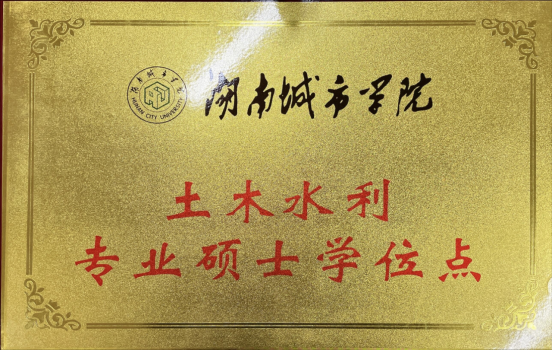 湖南城市学院
HUNAN CITY UNIVERSITY
湖南城市学院
土木水利
专业硕士学位点